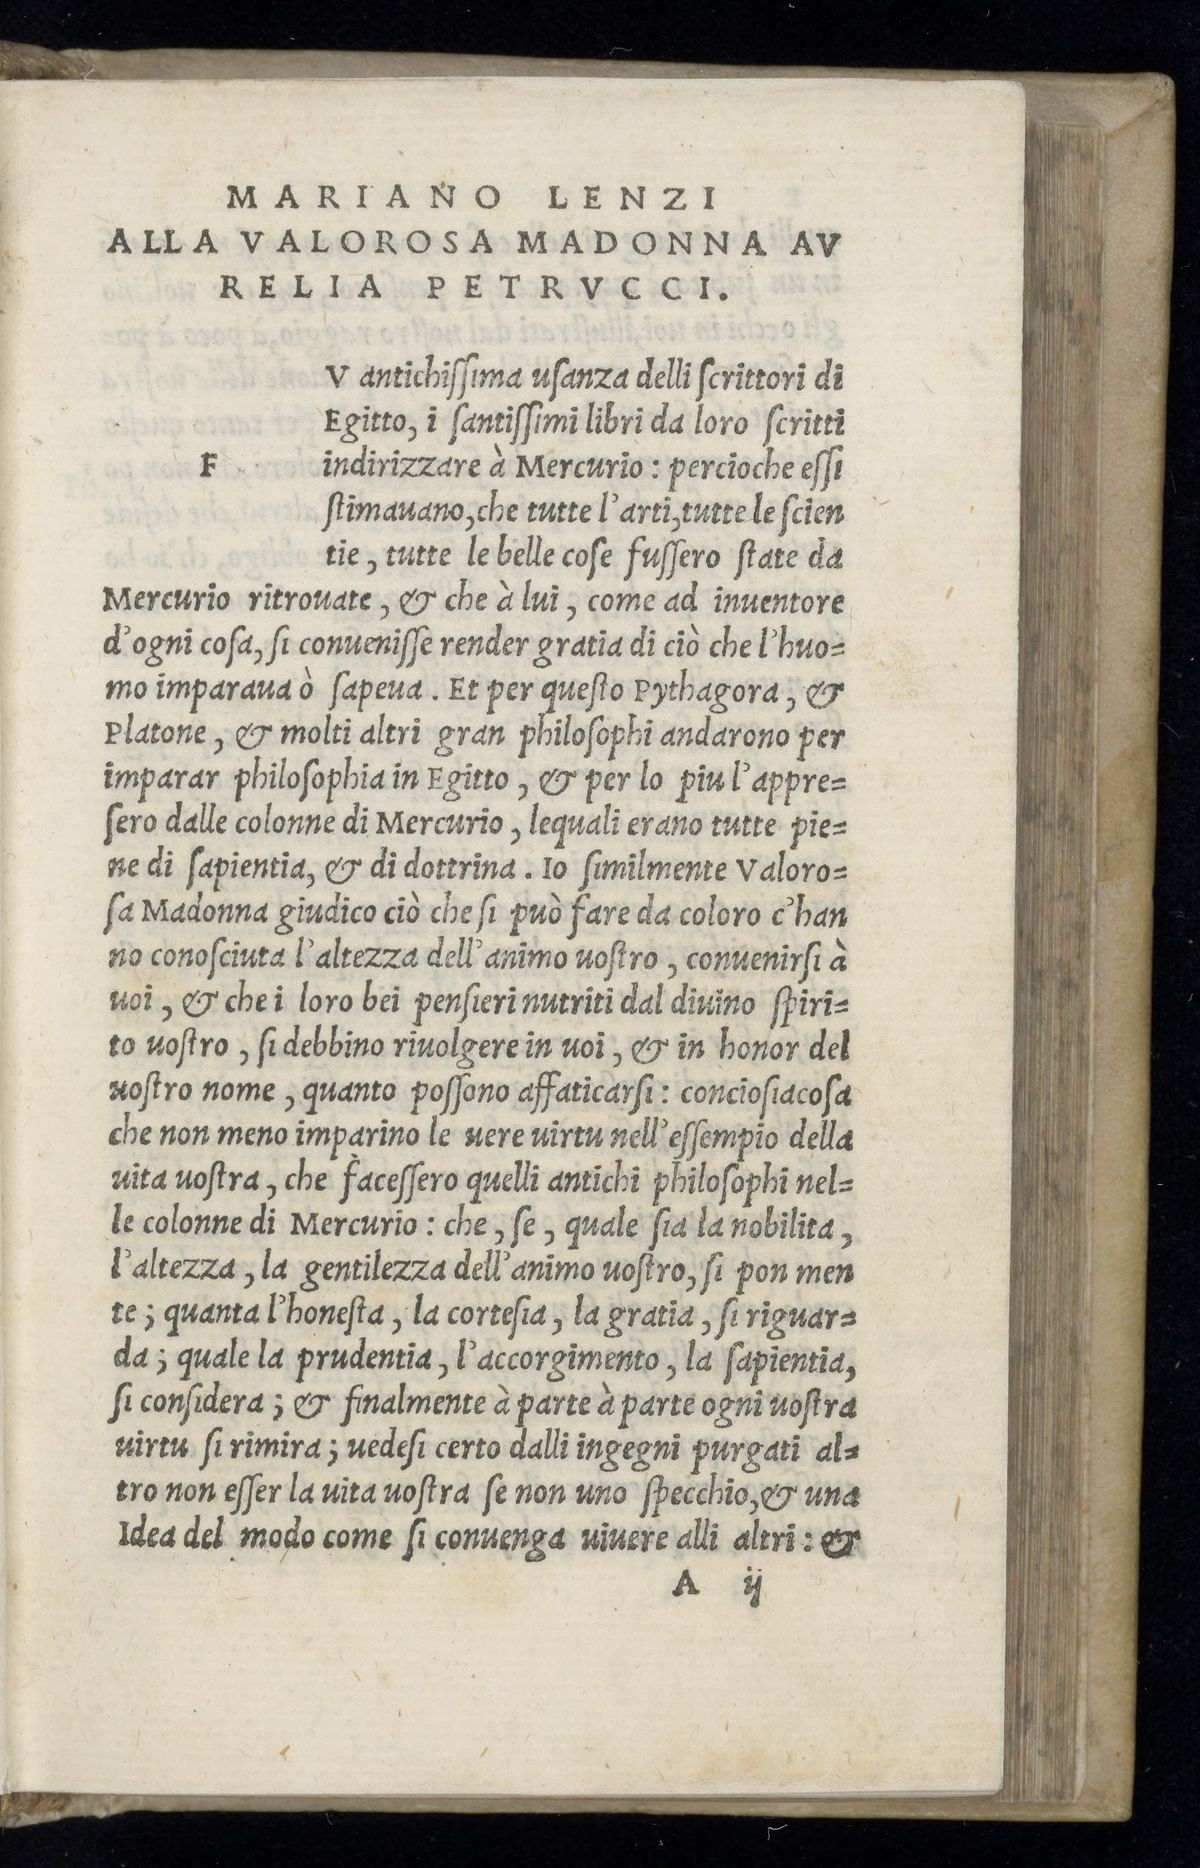 MARIANO LENZI
ALLA VALOROSA MADONNA AV
RELIA PETRVCCI.
V antichiſſima uſanza delli ſcrittori di
Egitto, i ſantiſſimi libri da loro ſcritti
F indirizzare à Mercurio : percioche eſſi
ſtimauano, che tutte l'arti, tutte le ſcien
tie, tutte le belle coſe fuſſero ſtate da
Mercurio ritrouate, & che à lui, come ad inuentore
d'ogni coſa, ſi conueniſſe render gratia di ciò che l'huo=
mo imparaua ò ſapeua. Et per queſto Pythagora, &
Platone, & molti altri gran philoſophi andarono per
imparar philoſophia in Egitto, & per lo piu l'appre=
ſero dalle colonne di Mercurio, lequali erano tutte pie=
ne di ſapientia, & di dottrina. Io ſimilmente Valoro=
ſa Madonna giudico ciò che ſi può fare da coloro c'han
no conoſciuta l'altezza dell'animo uoſtro, conuenirſi à
uoi, & che i loro bei penſieri nutriti dal diuino ſpiri=
to uoſtro, ſi debbino riuolgere in uoi, & in honor del
uoſtro nome, quanto poſſono affaticarſi: concioſiacoſa
che non meno imparino le uere uirtu nell'eſſempio della
uita uoſtra, che faceſſero quelli antichi philoſophi nel=
le colonne di Mercurio : che, ſe, quale ſia la nobilita,
l'altezza, la gentilezza dell'animo uoſtro, ſi pon men
te; quanta l'honeſta, la corteſia, la gratia, ſi riguar=
da; quale la prudentia, l'accorgimento, la ſapientia,
ſi conſidera; & finalmente à parte à parte ogni uoſtra
uirtu ſi rimira; uedeſi certo dalli ingegni purgati al=
tro non eſſer la uita uoſtra ſe non uno ſpecchio, & una
Idea del modo come ſi conuenga uiuere alli altri : &
A ij